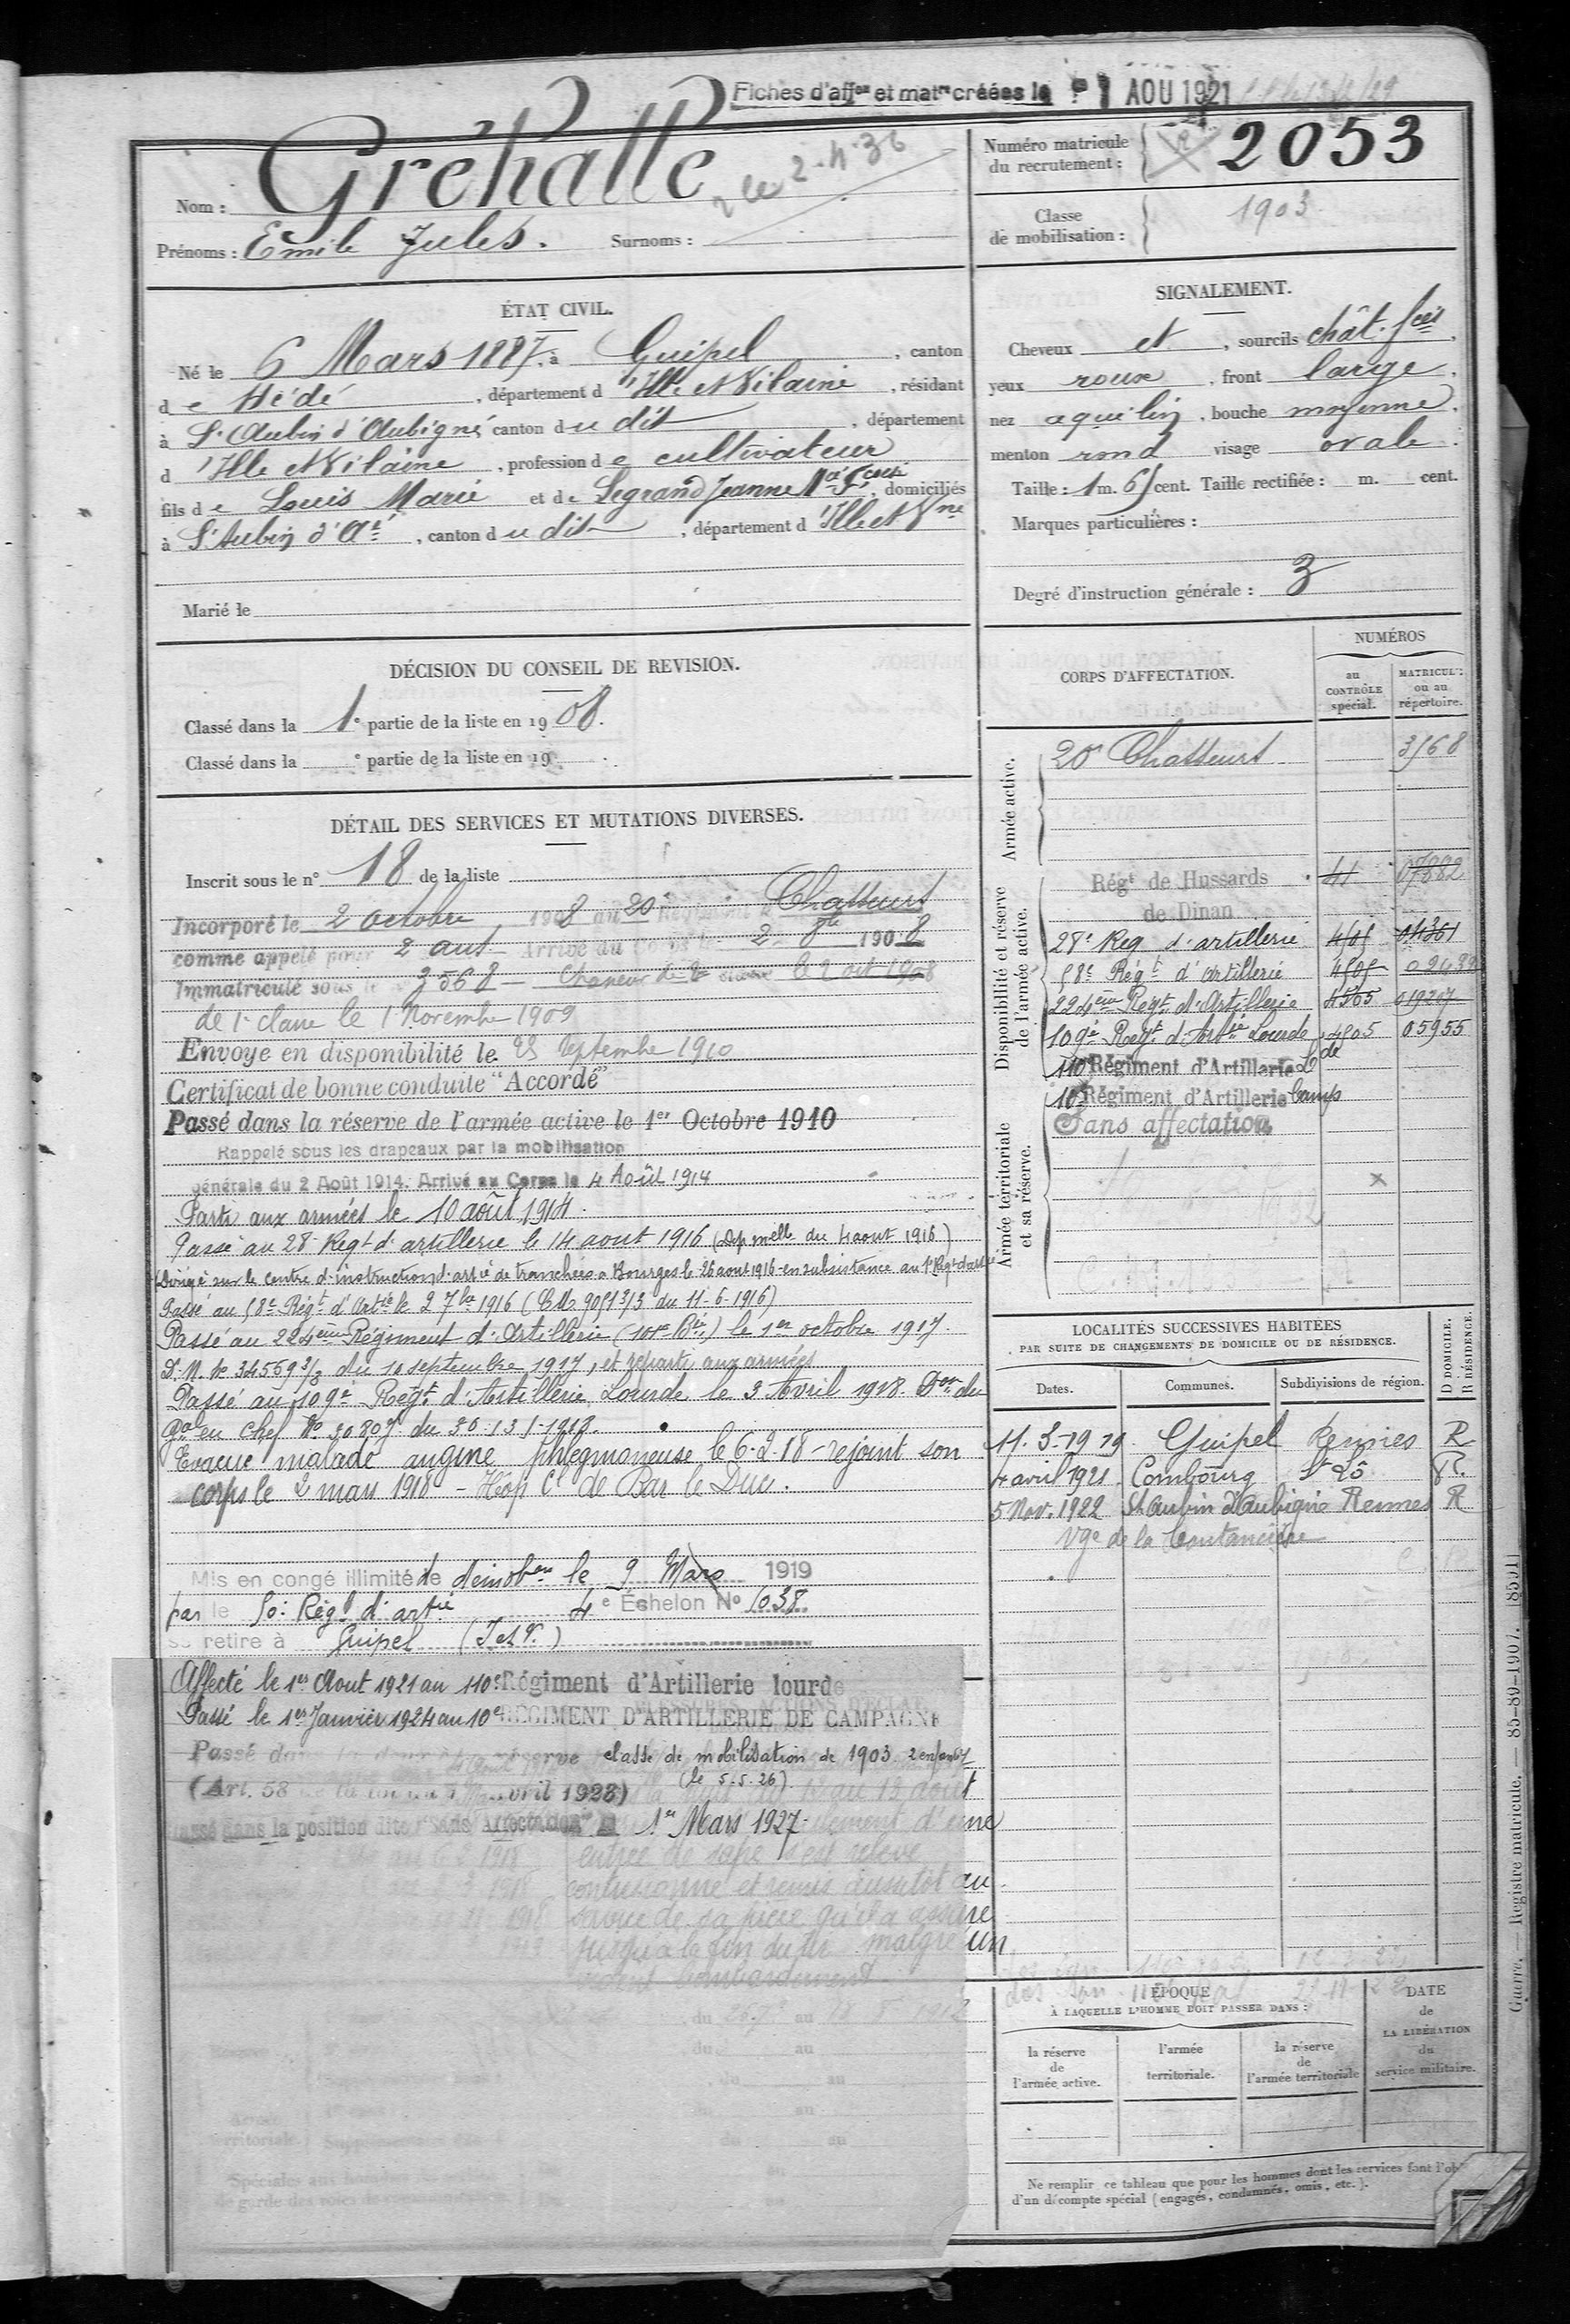 Fiches d'aff^on et mat^re créées le 1 AOU 1921
Nom : Gréhalle
2-4-36
Prénoms : Emile Jules. Surnoms :
Numéro matricule du recrutement : 2053
Classe de mobilisation : 1903
ÉTAT CIVIL.
Né le 6 Mars 1887, à Guipel, canton
de Hédé, département d'Ille et Vilaine, résidant
à St Aubin d'Aubigné canton du dit, département
d'Ille et Vilaine, profession de cultivateur
fils de Louis Marie et de Legrand Jeanne M^ie F^coise, domiciliés
à St Aubin d'A^é, canton du dit, département d'Ille et V^ne
Marié le
SIGNALEMENT.
Cheveux et, sourcils chât. f^cés
yeux roux, front large,
nez aquilin, bouche moyenne,
menton rond visage ovale.
Taille : 1 m. 65 cent. Taille rectifiée : m. cent.
Marques particulières :
Degré d'instruction générale : 3
DÉCISION DU CONSEIL DE REVISION.
Classé dans la 1^e partie de la liste en 1908.
Classé dans la ^e partie de la liste en 19 .
DÉTAIL DES SERVICES ET MUTATIONS DIVERSES.
Inscrit sous le n° 18 de la liste
Incorporé le 2 octobre 1908 au 20^e Régiment de Chasseurs
comme appelé pour 2 ans Arrivé au Corps le 2 8^bre 1908
Immatriculé sous le n° 3568 - Chasseur de 2^e classe le 2 oct 1908
de 1^e classe le 1 Novembre 1909
Envoyé en disponibilité le 25 Septembre 1910
Certificat de bonne conduite "Accordé"
Passé dans la réserve de l'armée active le 1^er Octobre 1910
Rappelé sous les drapeaux par la mobilisation
générale du 2 Août 1914. Arrivé au Corps le 4 Août 1914
Parti aux armées le 10 août 1914.
Passé au 28^e Reg^t d'artillerie le 14 aout 1916 (Dep. melle du 4 aout 1916)
Dirigé sur le centre d'instruction d'art^ie de tranchées à Bourges le 26 aout 1916 en subsistance au 1^er Reg^t d'art^ie
Passé au 58^e Rég^t d'Art^ie le 2 7^bre 1916 (C.M. 9051 3/3 du 11-6-1916)
Passé au 224^ème Régiment d'Artillerie (101^e B^ie) le 1^er octobre 1917.
D.M. N° 34569 3/3 du 10 septembre 1917, et reparti aux armées
Passé au 109^e Reg^t d'Artillerie Lourde le 3 Avril 1918. D^on du
G^al en Chef N° 30.807 du 30-1 31-1918.
Evacué malade angine phlegmoneuse le 6.2.18 - rejoint son
corps le 2 mars 1918 - Hôp C^l de Bar le Duc.
Mis en congé illimité de démob^on le 9 Mars 1919
par le 50^e Rég^t d'art^ie 4^e Échelon N° 1038
se retire à Guipel (I et V.)
Affecté le 1^er Aout 1921 au 110^e Régiment d'Artillerie lourde
Passé le 1^er Janvier 1924 au 10^e RÉGIMENT D'ARTILLERIE DE CAMPAGNE
Passé dans la réserve classe de mobilisation de 1903 2 enfants
(Art. 58 de la loi du 1^er Avril 1923) (le 5.5.26).
Passé dans la position dite "Sans Affectation" le 1^er Mars 1927.
entrée de sape s'est relevé
contusionné et remis aussitôt au
service de sa pièce qu'il a assuré
jusqu'à la fin du tir malgré un
violent bombardement
CORPS D'AFFECTATION.
NUMÉROS
au CONTRÔLE spécial.
MATRICULE ou au répertoire.
Armée active.
20^e Chasseurs 3568
Disponibilité et réserve de l'armée active.
Rég^t de Hussards de Dinan 41 07882
28^e Reg d'artillerie 4505 04361
58^e Rég^t d'Artillerie 4505
224^ème Reg^t d'Artillerie 4505 019207
109^e Reg^t d'Art^ie Lourde 4805 05955
110^e Régiment d'Artillerie L^de
10^e Régiment d'Artillerie Camp
Sans affectation
Armée territoriale et sa réserve.
LOCALITÉS SUCCESSIVES HABITÉES
PAR SUITE DE CHANGEMENTS DE DOMICILE OU DE RÉSIDENCE.
Dates. Communes. Subdivisions de région. D DOMICILE. R RÉSIDENCE.
11.3.1919 Guipel Rennes R
4 avril 1921 Combourg St Lô R.
5 Nov. 1922 St Aubin d'Aubigné Rennes R
Vge de la Coutancière
ÉPOQUE
À LAQUELLE L'HOMME DOIT PASSER DANS :
la réserve de l'armée active.
l'armée territoriale.
la réserve de l'armée territoriale
DATE de LA LIBÉRATION du service militaire.
Ne remplir ce tableau que pour les hommes dont les services font l'ob
d'un décompte spécial (engagés, condamnés, omis, etc.).
Guerre. — Registre matricule. — 85-89-1907. [8591]